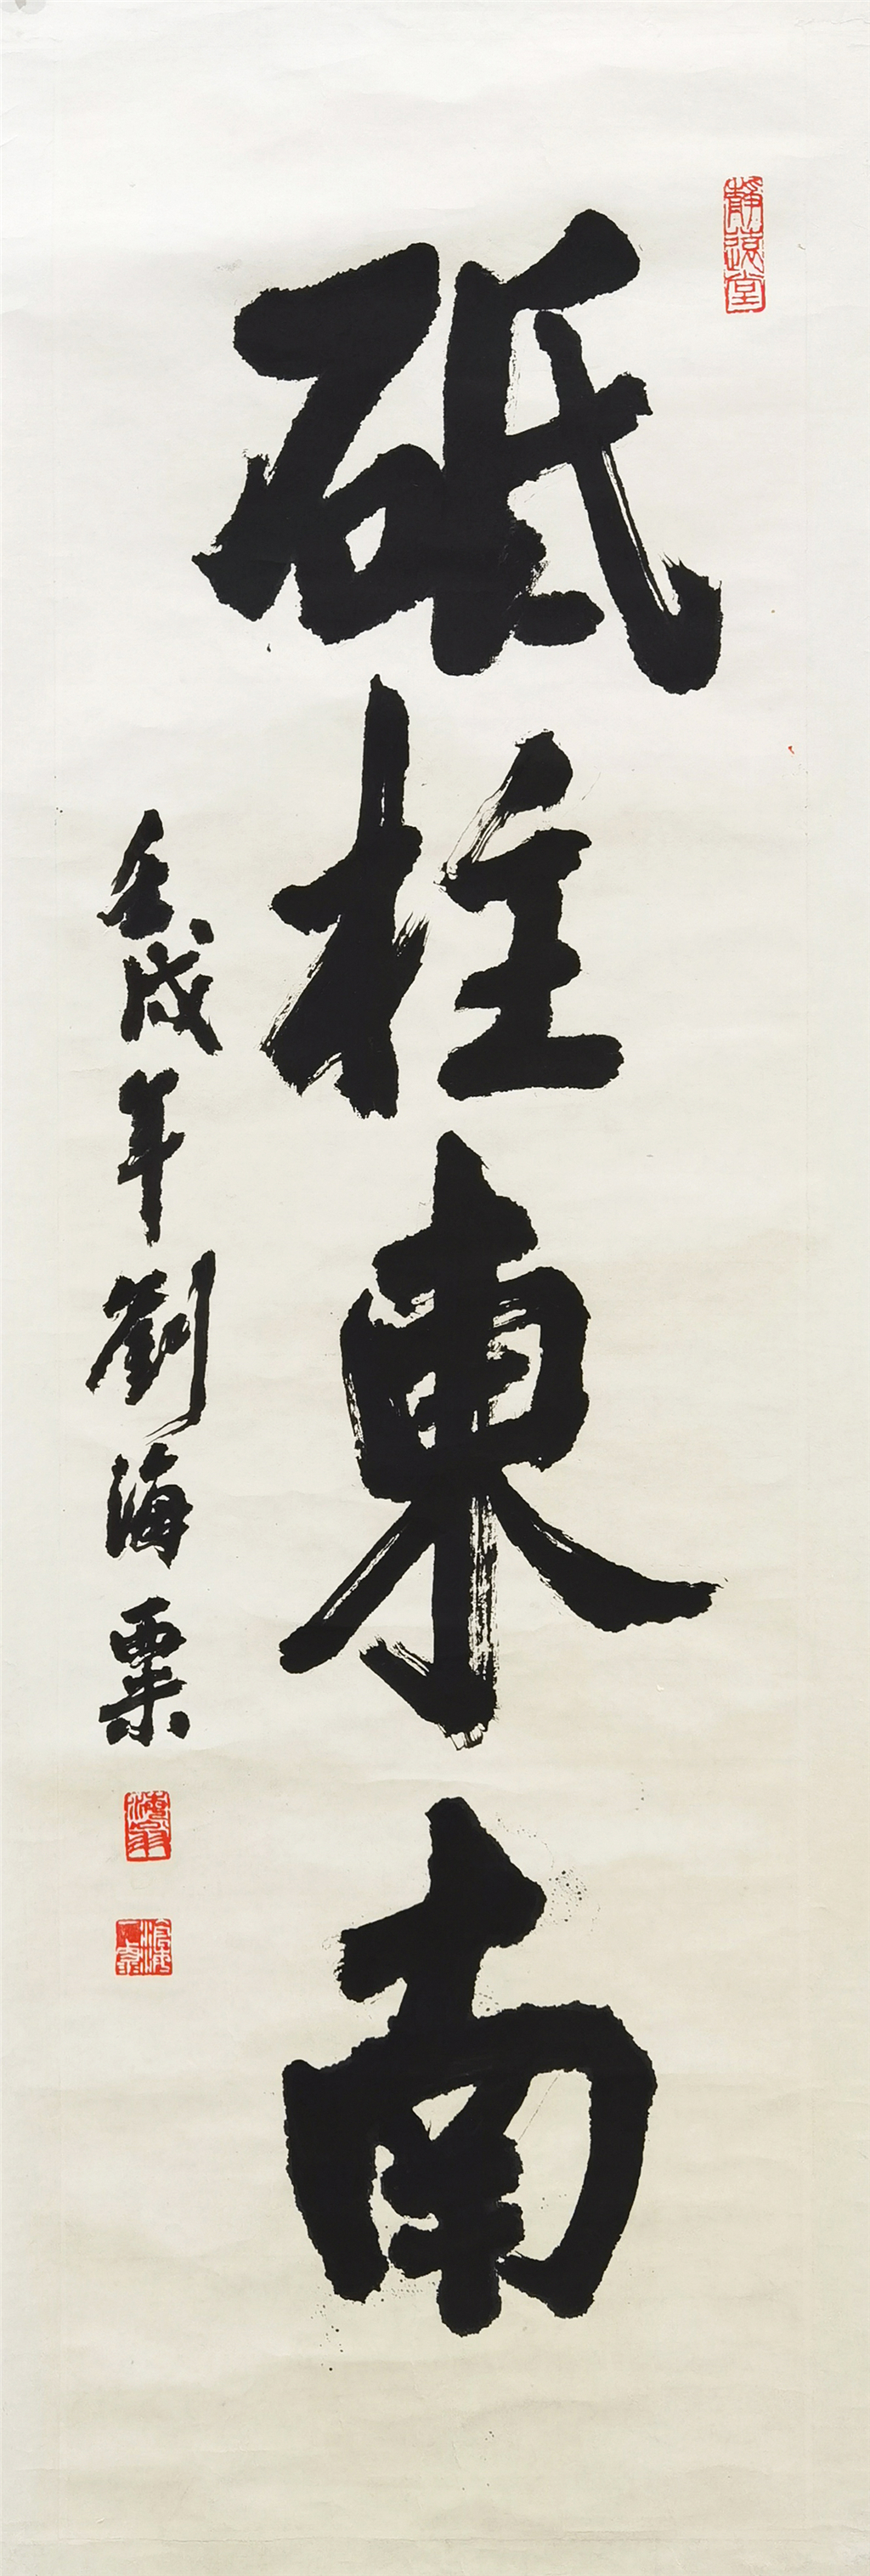 砥柱東南
壬戌年劉海粟
靜遠堂
海翁